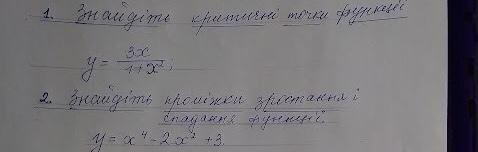 1. Знайдіть критичні точки функції
y = 3x / 1+x² ;
2. Знайдіть проміжки зростання і
спадання функції.
y = x⁴ - 2x² + 3.